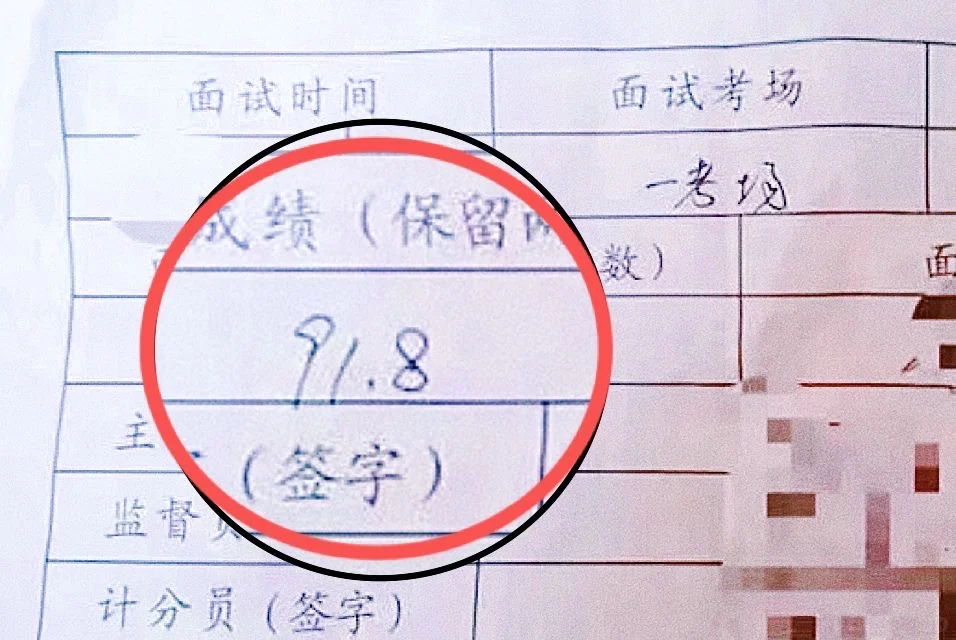 面试时间 面试考场
一考场
成绩（保留 数） 面
91.8
主 （签字）
监督员
计分员（签字）